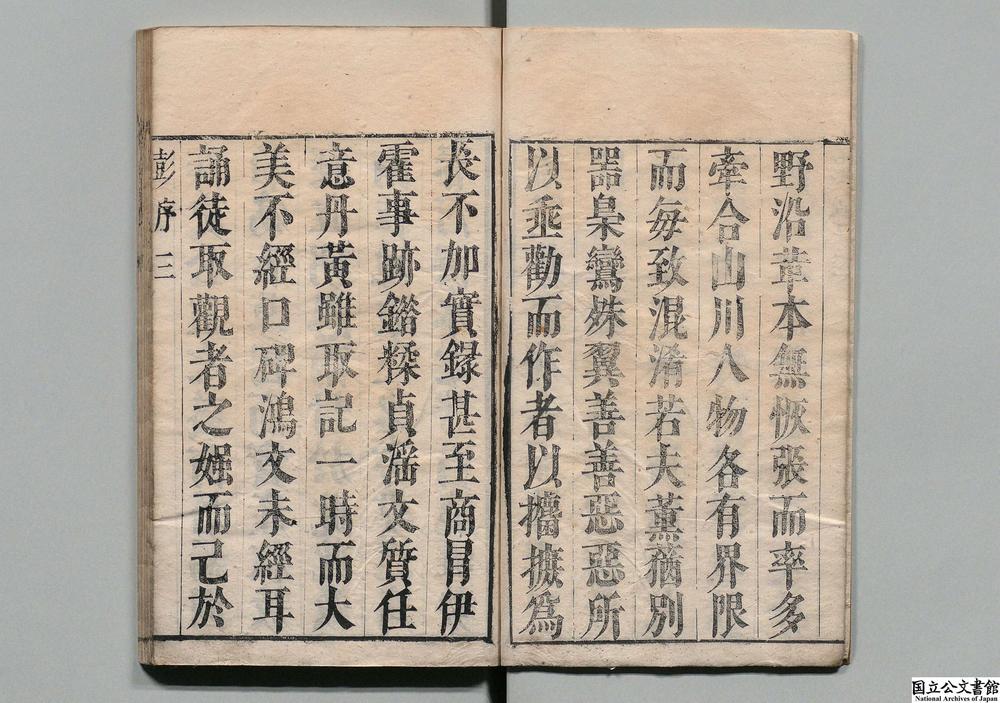 野沿革本無恢張而率多
牽合山川人物各有界限
而每致混淆若夫薰蕕別
器梟鸞殊翼善善惡惡所
以埀勸而作者以擕摭為
長不加實録甚至商冐伊
霍事跡鐕糅貞滛文質任
意丹黃雖取記一時而大
美不經口碑鴻文未經耳
誦徒取觀者之娛而己於
彭序 三
国立公文書館
National Archives of Japan